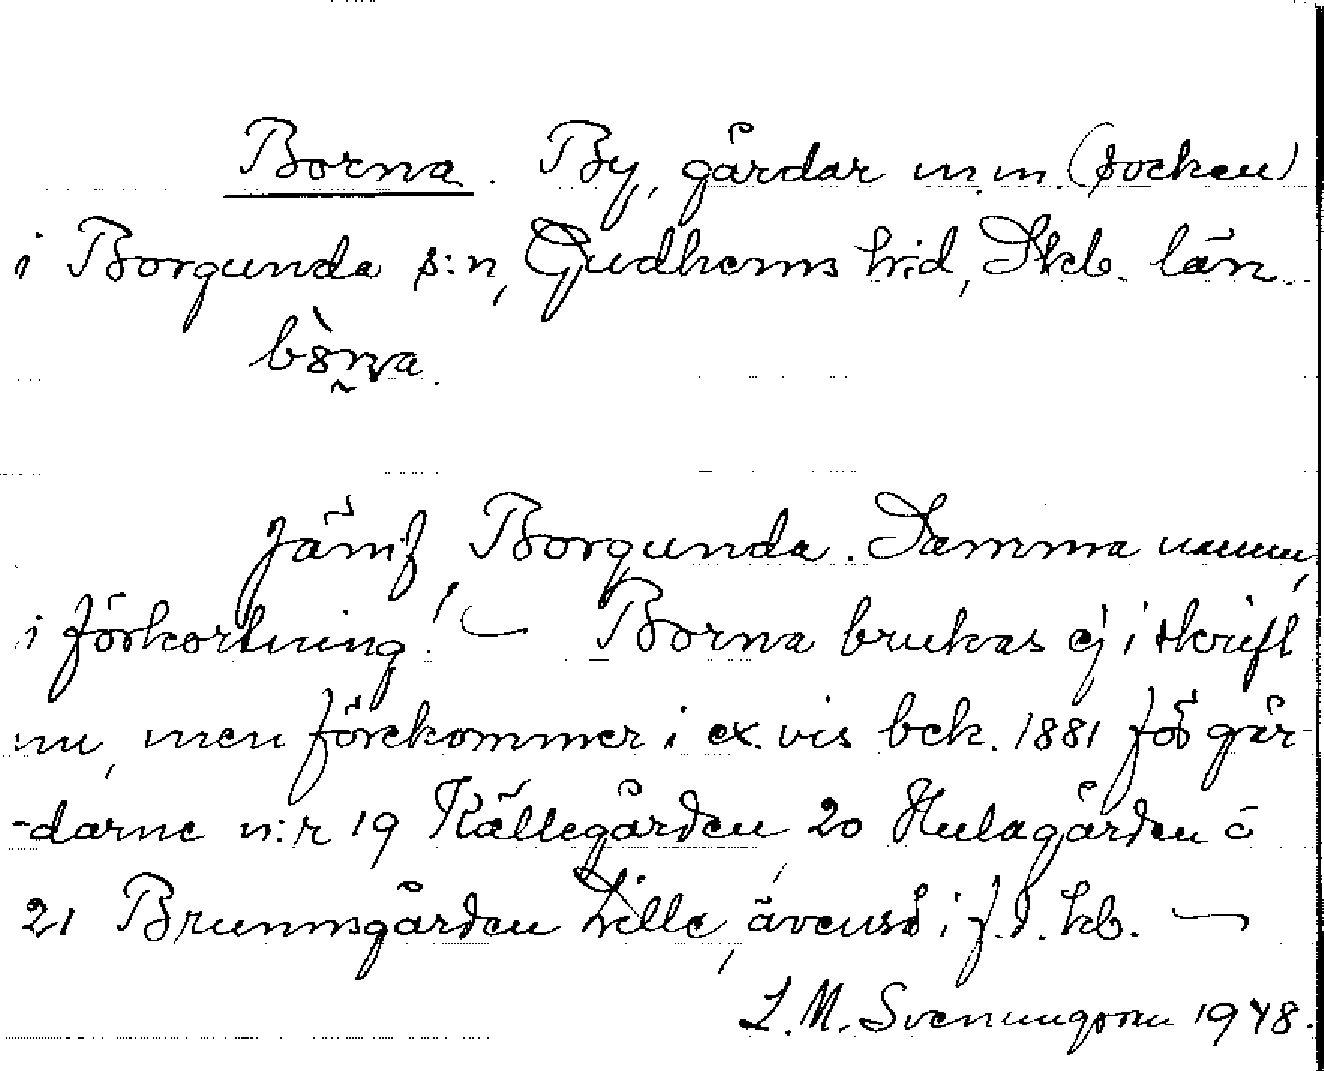 Borna. By, gårdar m.m. (socken)
i Borgunda s:n, Gudhems h:d, Skb. län.
Jämf Borgunda. Samma namn,
i förkortning! — Borna brukas ej i skrift
nu, men förekommer i ex.vis bek. 1881 för går-
-darne n:r 19 Källegården, 20 Hulagården o
21 Brunnsgården Lille, ävenså i f.d. kb. —
L.M. Svenungsson 1948.